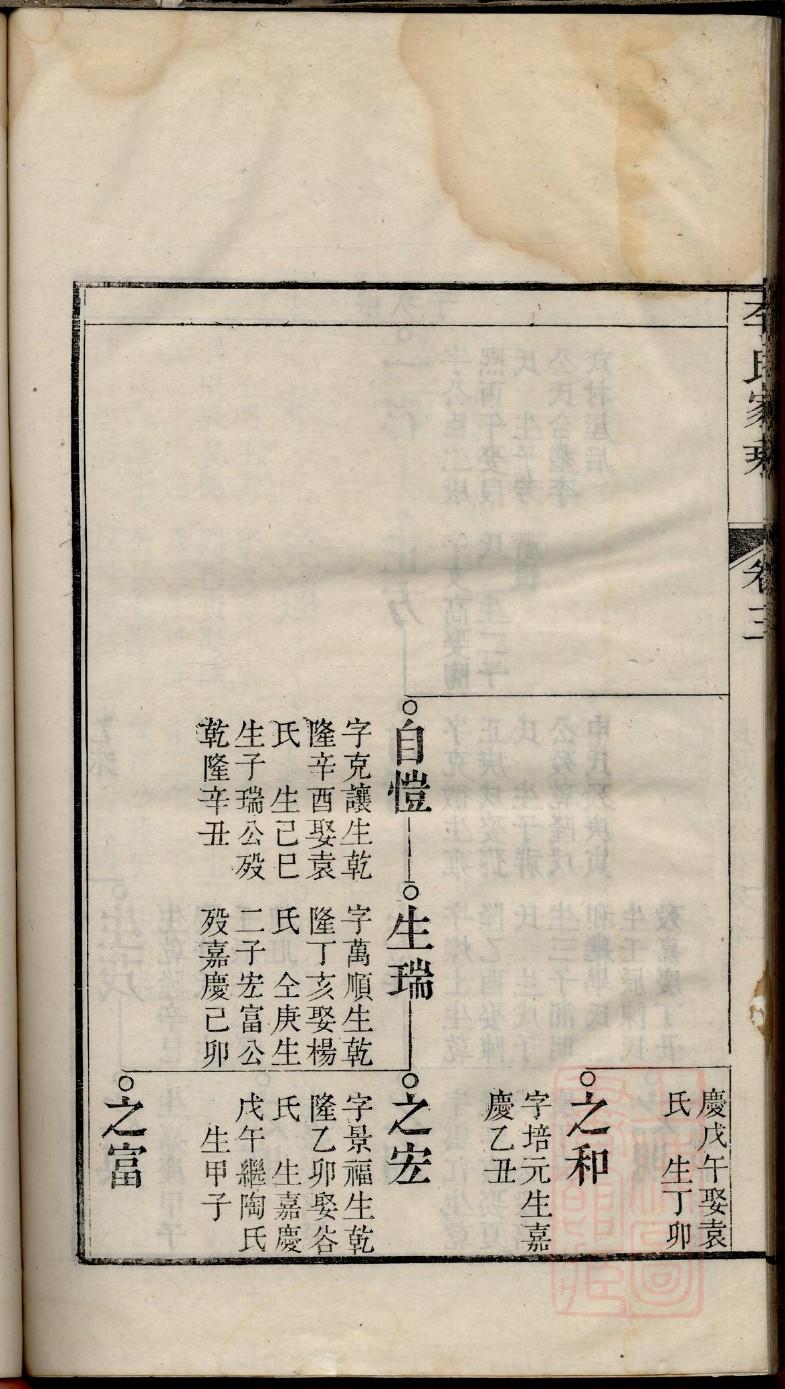 李氏家乘
卷三
慶戊午娶袁
氏　生丁卯
之和
字培元生嘉
慶乙丑
自愷
字克讓生乾
隆辛酉娶袁
氏　生己巳
生子瑞公歿
乾隆辛丑
生瑞
字萬順生乾
隆丁亥娶楊
氏　仝庚生
二子宏富公
歿嘉慶己卯
之宏
字景福生乾
隆乙卯娶谷
氏　生嘉慶
戊午繼陶氏
生甲子
之富